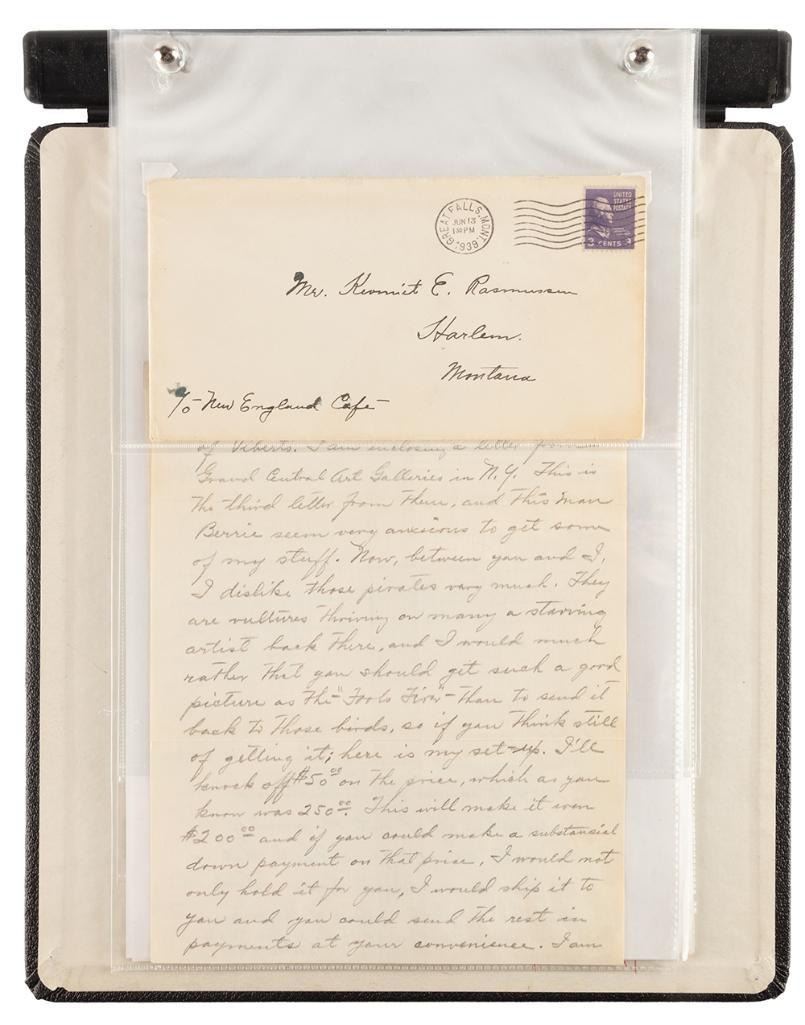 GREAT FALLS, MONT.
JUN 13
1 30 PM
1939
UNITED
STATES
POSTAGE
3 CENTS 3
Mr. Kermit E. Rasmussen
Harlem.
Montana
c/o New England Cafe
of Viberts. I am enclosing a letter from
Grand Central Art Galleries in N.Y. This is
the third letter from them, and this man
Berrie seem very anxious to get some
of my stuff. Now, between you and I,
I dislike those pirates very much. They
are vultures thriving on many a starving
artist back there, and I would much
rather that you should get such a good
picture as the "Fools Fire" than to send it
back to those birds, so if you think still
of getting it; here is my set-up. I'll
knock off $50.00 on the price, which as you
know was 250.00. This will make it even
$200.00 and if you could make a substansial
down payment on that price, I would not
only hold it for you, I would ship it to
you and you could send the rest in
payments at your convenience. I am